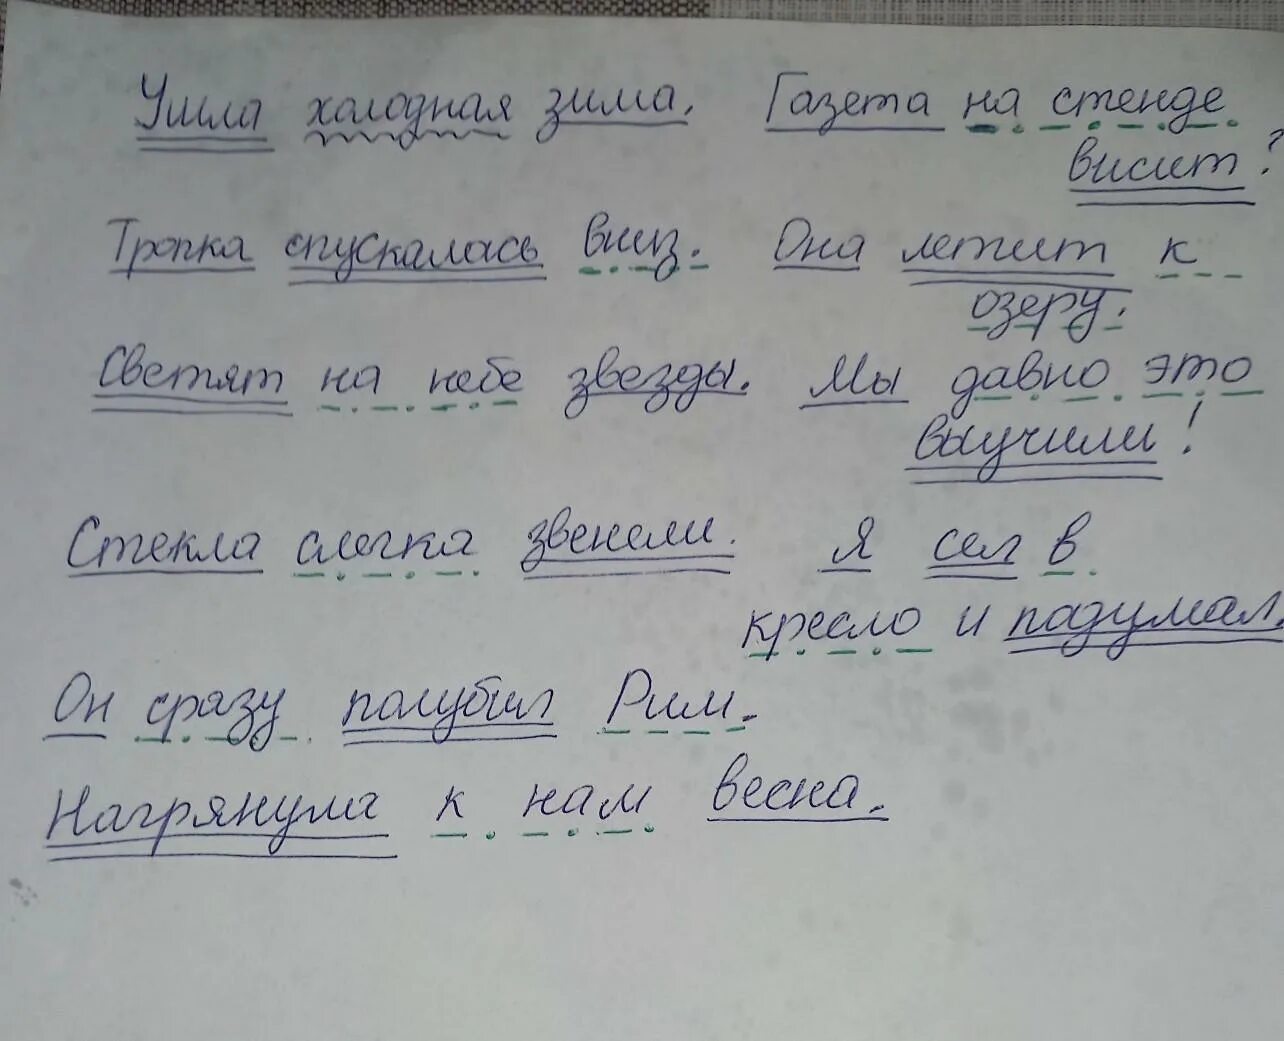 Ушла холодная зима. Газета на стенде
висит?
Тропка спускалась вниз. Она летит к
озеру.
Светят на небе звезды. Мы давно это
выучили!
Стекла слегка звенели. Я сел в
кресло и подумал.
Он сразу полубил Рим.
Нагрянула к нам весна.